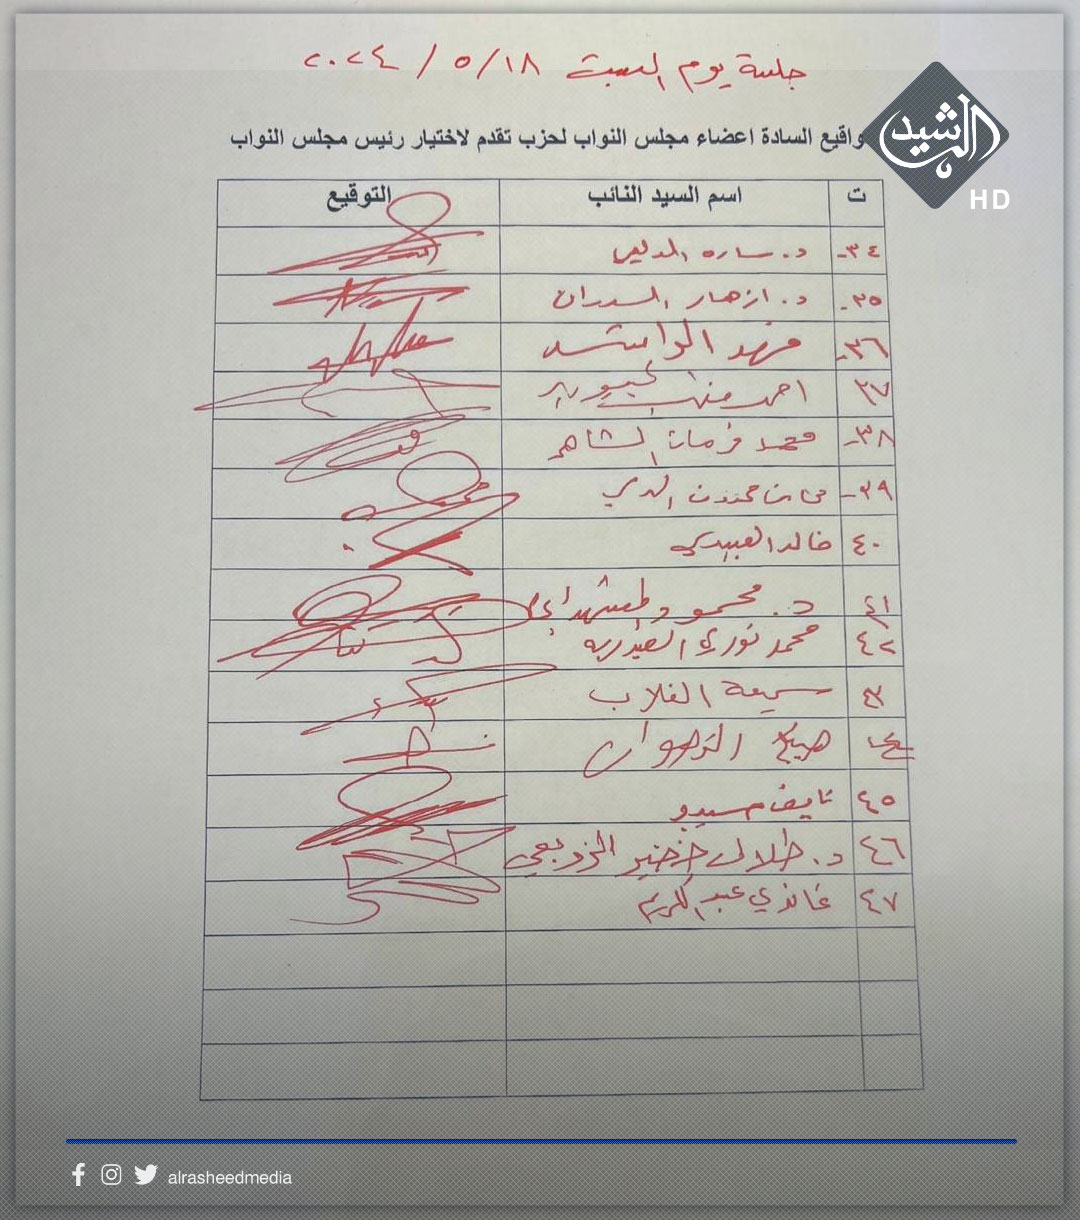 جلسة يوم السبت ١٨/٥/٢٠٢٤
الرشيد
HD
واقيع السادة اعضاء مجلس النواب لحزب تقدم لاختيار رئيس مجلس النواب
ت اسم السيد النائب التوقيع
٣٤- د. ساره الدليمي
٣٥- د. ازهار السدران
٣٦- فهد الراشد
٣٧ احمد الجبوري
٣٨- محمد فرمان الشاهر
٣٩-
٤٠ خالد العبيدي
٤١ د. محمود المشهداني
٤٢ محمد نوري
٤٣ سميعة الغلاب
٤٤ هيبت
٤٥ نايف سيدو
٤٦ د. طلال خضير الزوبعي
٤٧ غاندي عبد الكريم
alrasheedmedia